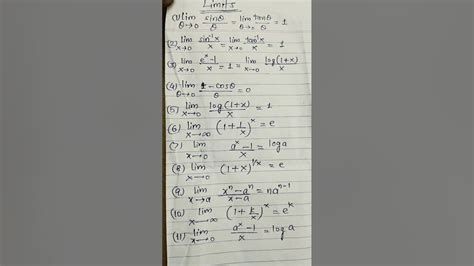 Limits
(1) lim θ→0 sinθ/θ = lim θ→0 tanθ/θ = 1
(2) lim x→0 sin⁻¹x/x = lim x→0 tan⁻¹x/x = 1
(3) lim x→0 (eˣ-1)/x = 1 = lim x→0 log(1+x)/x
(4) lim θ→0 (1-cosθ)/θ = 0
(5) lim x→0 log(1+x)/x = 1
(6) lim x→∞ (1+1/x)ˣ = e
(7) lim x→0 (aˣ-1)/x = log a
(8) lim x→0 (1+x)^(1/x) = e
(9) lim x→a (xⁿ-aⁿ)/(x-a) = naⁿ⁻¹
(10) lim x→∞ (1+k/x)ˣ = eᵏ
(11) lim x→0 (aˣ-1)/x = log a